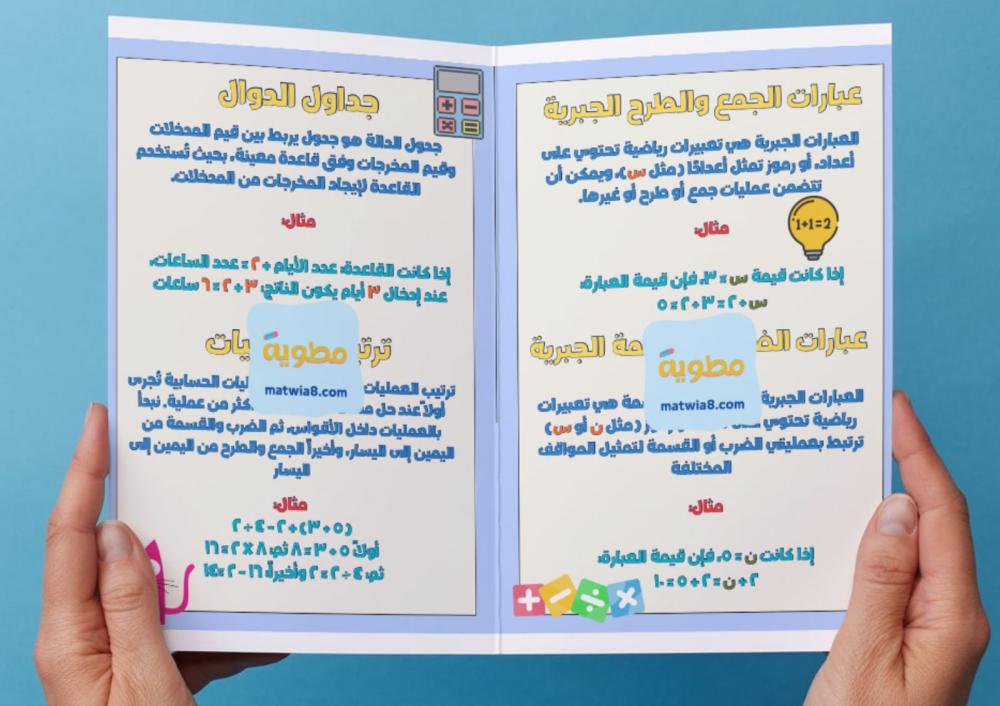 عبارات الجمع والطرح الجبرية
العبارات الجبرية هي تعبيرات رياضية تحتوي على
أعداد، أو رموز تمثل أعدادًا (مثل س)، ويمكن أن
تتضمن عمليات جمع أو طرح أو غيرها.
1+1=2
مثال:
إذا كانت قيمة س = ٣، فإن قيمة العبارة:
س + ٢ = ٣ + ٢ = ٥
عبارات الجبرية
العبارات الجبرية هي تعبيرات
رياضية تحتوي (مثل ن أو س)
ترتبط بعمليتي الضرب أو القسمة لتمثيل المواقف
المختلفة
مطوية
matwia8.com
مثال:
إذا كانت ن = ٥، فإن قيمة العبارة:
٢ + ن = ٢ + ٥ = ١٠
جداول الدوال
جدول الدالة هو جدول يربط بين قيم المدخلات
وقيم المخرجات وفق قاعدة معينة، بحيث تُستخدم
القاعدة لإيجاد المخرجات من المدخلات.
مثال:
إذا كانت القاعدة: عدد الأيام + ٢ = عدد الساعات،
عند إدخال ٣ أيام يكون الناتج: ٣ + ٢ = ٦ ساعات
مطوية
matwia8.com
ترتيب العمليات الحسابية تُجرى
أولاً عند حل من عملية. نبدأ
بالعمليات داخل الأقواس، ثم الضرب والقسمة من
اليمين إلى اليسار، وأخيراً الجمع والطرح من اليمين إلى
اليسار
مثال:
(٥ + ٣) + ٢ - ٤ ÷ ٢
أولاً: ٥ + ٣ = ٨ ثم: ٨ X ٢ = ١٦
ثم: ٤ ÷ ٢ = ٢ وأخيراً: ١٦ - ٢ = ١٤